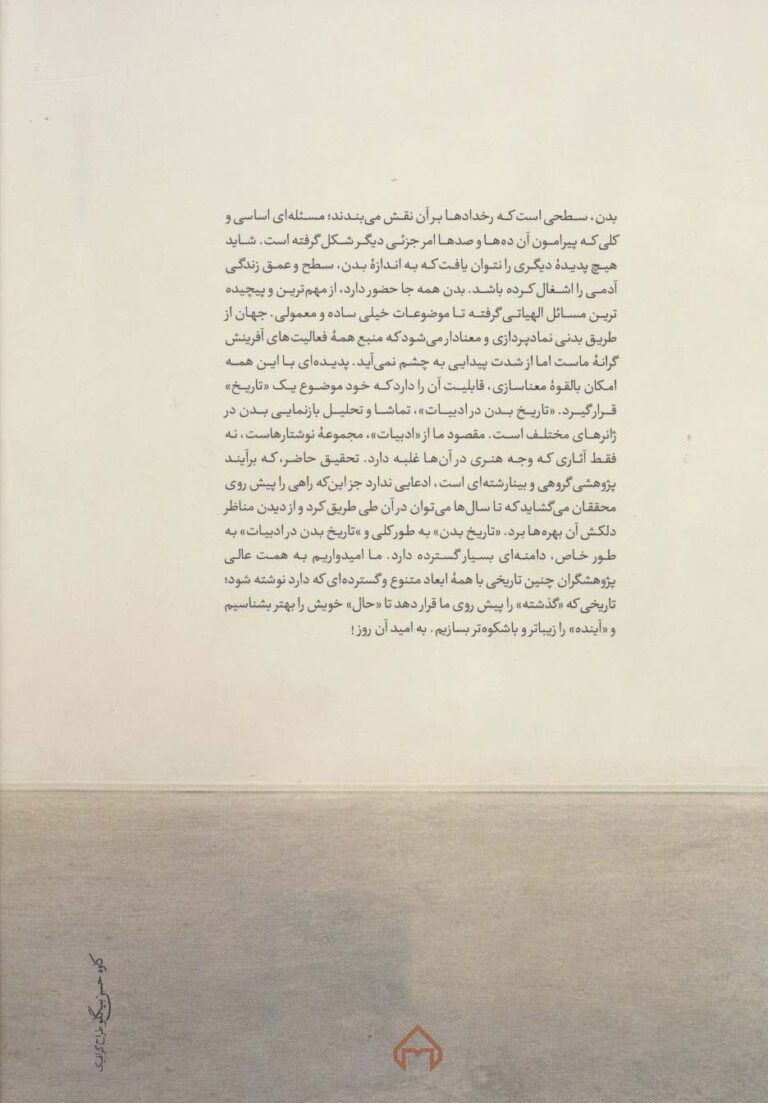 بدن، سطحی است که رخدادها بر آن نقش می‌بندند؛ مسئله‌ای اساسی و
کلی که پیرامون آن ده‌ها و صدها امر جزئی دیگر شکل گرفته است. شاید
هیچ پدیدهٔ دیگری را نتوان یافت که به اندازهٔ بدن، سطح و عمق زندگی
آدمی را اشغال کرده باشد. بدن همه جا حضور دارد، از مهم‌ترین و پیچیده
ترین مسائل الهیاتی گرفته تا موضوعات خیلی ساده و معمولی. جهان از
طریق بدنی نمادپردازی و معنادار می‌شود که منبع همهٔ فعالیت‌های آفرینش
گرانهٔ ماست اما از شدت پیدایی به چشم نمی‌آید. پدیده‌ای با این همه
امکان بالقوهٔ معناسازی، قابلیت آن را دارد که خود موضوع یک «تاریخ»
قرار گیرد. «تاریخ بدن در ادبیات»، تماشا و تحلیل بازنمایی بدن در
ژانرهای مختلف است. مقصود ما از «ادبیات»، مجموعهٔ نوشتارهاست، نه
فقط آثاری که وجه هنری در آن‌ها غلبه دارد. تحقیق حاضر، که برآیند
پژوهشی گروهی و بینارشته‌ای است، ادعایی ندارد جز این‌که راهی را پیش روی
محققان می‌گشاید که تا سال‌ها می‌توان در آن طی طریق کرد و از دیدن مناظر
دلکش آن بهره‌ها برد. «تاریخ بدن» به طور کلی و «تاریخ بدن در ادبیات» به
طور خاص، دامنه‌ای بسیار گسترده دارد. ما امیدواریم به همت عالی
پژوهشگران چنین تاریخی با همهٔ ابعاد متنوع و گسترده‌ای که دارد نوشته شود؛
تاریخی که «گذشته» را پیش روی ما قرار دهد تا «حال» خویش را بهتر بشناسیم
و «آینده» را زیباتر و باشکوه‌تر بسازیم. به امید آن روز!
کاوه حسن بیگلو طراح گرافیک